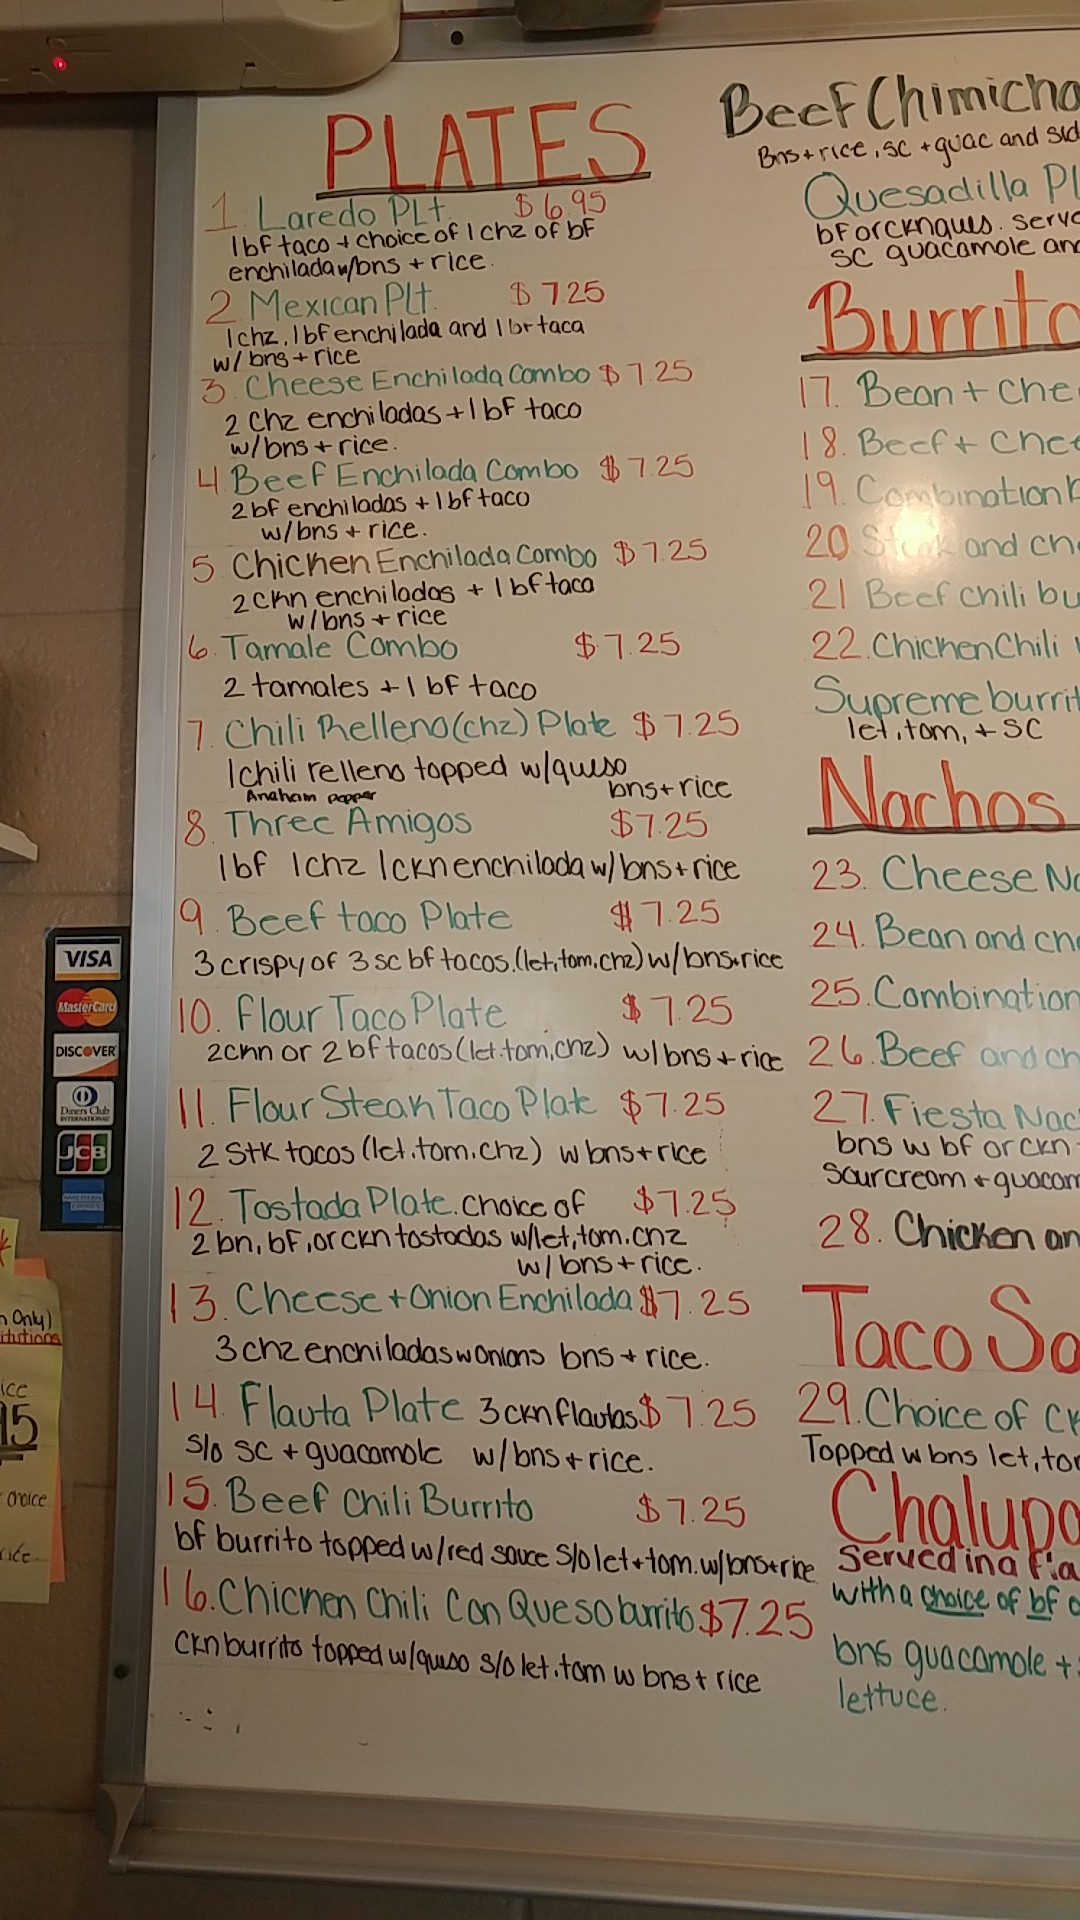 PLATES
1. Laredo PLt. $6.95
1 bf taco + choice of 1 chz of bf
enchilada w/bns + rice.
2. Mexican Plt. $7.25
1chz, 1bf enchilada and 1 bf taca
w/ bns + rice
3. Cheese Enchilada Combo $7.25
2 Chz enchiladas + 1 bf taco
w/bns + rice.
4. Beef Enchilada Combo $7.25
2 bf enchiladas + 1 bf taco
w/bns + rice.
5. Chicken Enchilada Combo $7.25
2 ckn enchiladas + 1 bf taco
w/bns + rice
6. Tamale Combo $7.25
2 tamales + 1 bf taco
7. Chili Relleno (chz) Plate $7.25
1 chili relleno topped w/queso
Anahaim pepper bns + rice
8. Three Amigos $7.25
1bf 1chz 1ckn enchilada w/bns + rice
9. Beef taco Plate $7.25
3 crispy of 3 sc bf tacos. (let, tom, chz) w/bns + rice
10. Flour Taco Plate $7.25
2 ckn or 2 bf tacos (let. tom, chz) w/bns + rice
11. Flour Steak Taco Plate $7.25
2 Stk tacos (let. tom. chz) w bns + rice
12. Tostada Plate. choice of $7.25
2 bn, bf, or ckn tostadas w/let, tom. chz
w/ bns + rice.
13. Cheese + Onion Enchilada $7.25
3 chz enchiladas w onions bns + rice.
14. Flauta Plate 3 ckn flautas $7.25
s/o sc + guacamole w/bns + rice.
15. Beef Chili Burrito $7.25
bf burrito topped w/red sauce s/o let + tom. w/bns + rice
16. Chicken Chili Con Queso burrito $7.25
Ckn burrito topped w/queso s/o let. tom w bns + rice
Beef Chimicha
Bns + rice, sc + guac and sid
Quesadilla Pl
bf or ckn ques. serve
sc guacamole and
Burrito
17. Bean + Che
18. Beef + Chee
19. Combination b
20. Steak and ch
21 Beef chili bu
22. Chicken Chili
Supreme burrit
let, tom, + SC
Nachos
23. Cheese Na
24. Bean and che
25. Combination
26. Beef and ch
27. Fiesta Nac
bns w bf or ckn
Sourcream + guacam
28. Chicken an
Taco Sa
29. Choice of ck
Topped w bns let, tom
Chalupa
Served in a fla
with a choice of bf o
bns guacamole +
lettuce.
VISA
MasterCard
DISCOVER
Diners Club
INTERNATIONAL
JCB
AMERICAN
EXPRESS
n Only)
itutions
ice
95
choice
rice